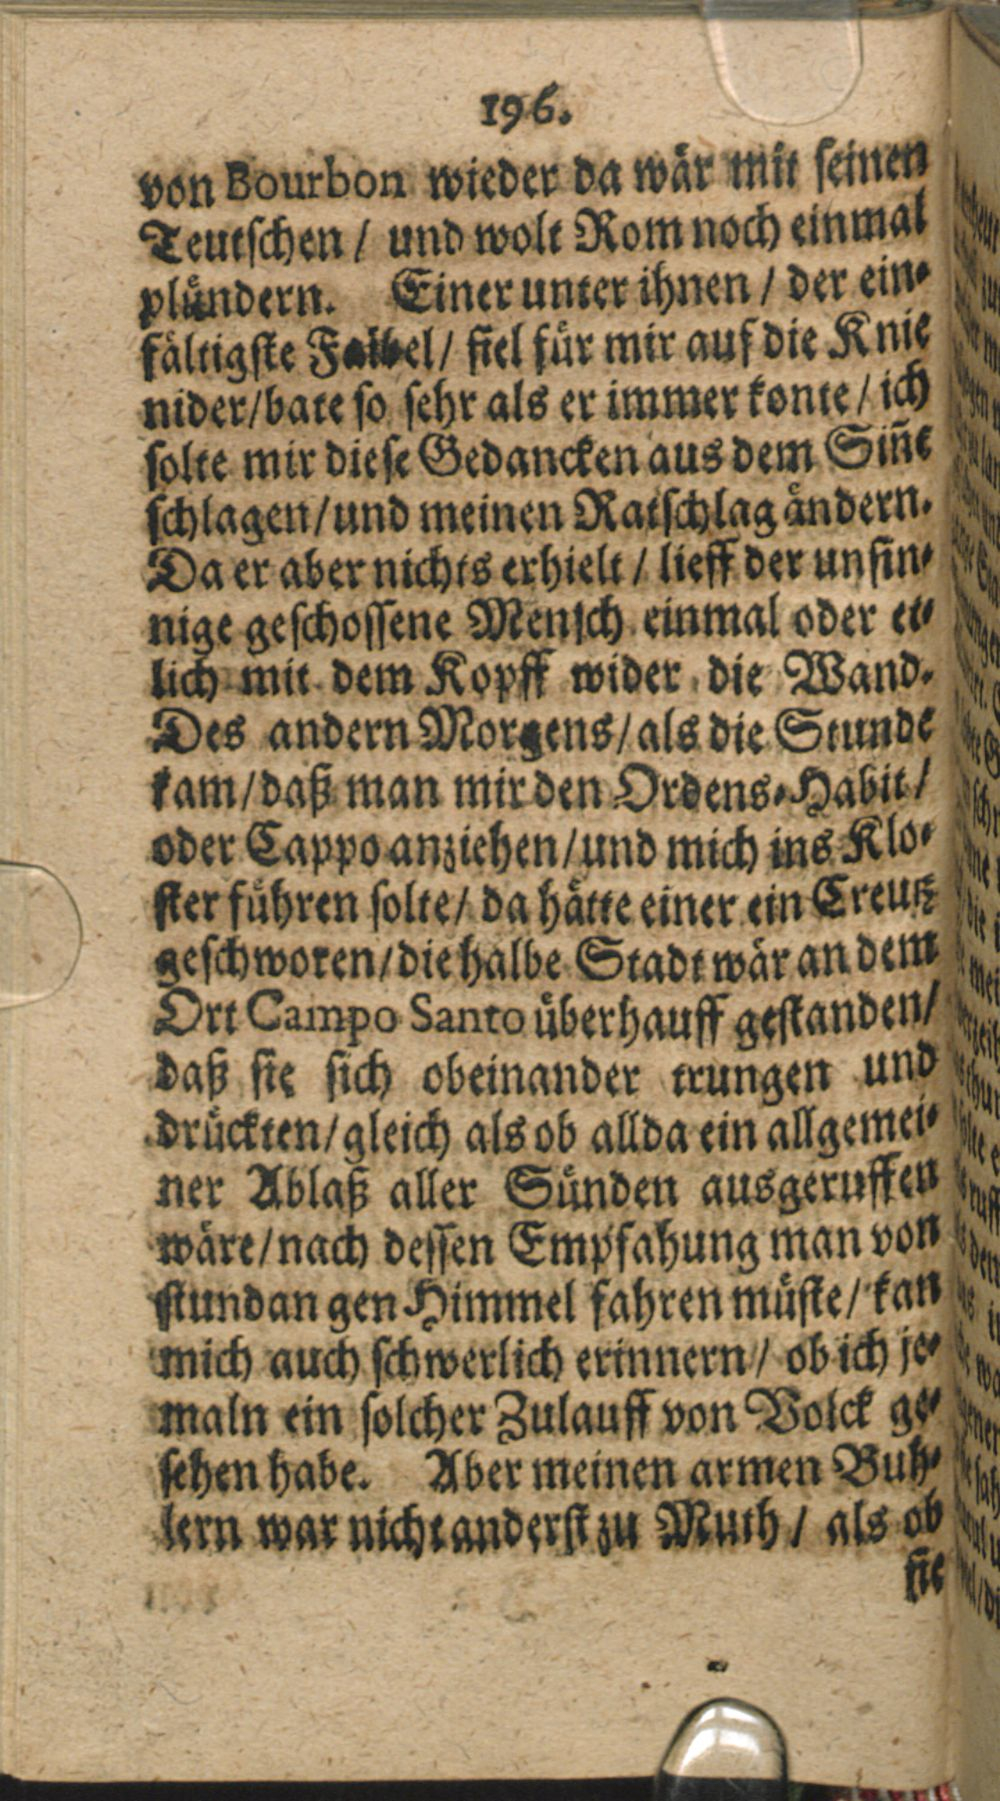 196.
von Bourbon wieder da wär mit seinen
Teutschen / und wolt Rom noch einmal
plündern. Einer unter ihnen / der ein-
fältigste / fiel für mir auf die Knie
nider/bate so sehr als er immer konte / ich
solte mir diese Gedancken aus dem Siñe
schlagen/und meinen Ratschlag ändern.
Da er aber nichts erhielt / lieff der unsin-
nige geschossene Mensch einmal oder et-
lich mit dem Kopff wider die Wand.
Des andern Morgens/als die Stunde
kam/daß man mir den Ordens-Habit/
oder Cappo anziehen/und mich ins Klo-
ster führen solte/ da hätte einer ein Creutz
geschworen/die halbe Stadt wär an dem
Ort Campo Santo überhauff gestanden/
daß sie sich obeinander trungen und
drückten/gleich als ob allda ein allgemei-
ner Ablaß aller Sünden ausgeruffen
wäre/nach dessen Empfahung man von
stundan gen Himmel fahren müste/ kan
mich auch schwerlich erinnern/ ob ich je-
maln ein solcher Zulauff von Volck ge-
sehen habe. Aber meinen armen Buh-
lern war nicht anderst zu Muth / als ob
sie